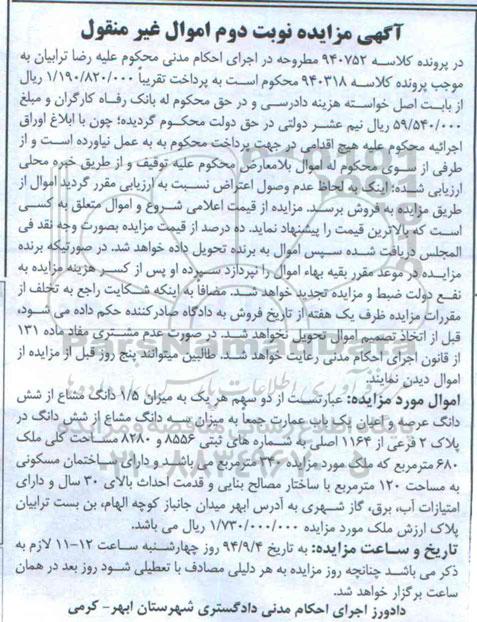 آگهی مزایده نوبت دوم اموال غیر منقول
در پرونده کلاسه ۹۴۰۷۵۲ مطروحه در اجرای احکام مدنی محکوم علیه رضا ترابیان به
موجب پرونده کلاسه ۹۴۰۳۱۸ محکوم است به پرداخت تقریباً ۱/۱۹۰/۸۲۰/۰۰۰ ریال
از بابت اصل خواسته هزینه دادرسی و در حق محکوم له بانک رفاه کارگران و مبلغ
۵۹/۵۴۰/۰۰۰ ریال نیم عشر دولتی در حق دولت محکوم گردیده؛ چون با ابلاغ اوراق
اجرائیه محکوم علیه هیچ اقدامی در جهت پرداخت محکوم به به عمل نیاورده است و از
طرفی از سوی محکوم له اموال بلامعارض محکوم علیه توقیف و از طریق خبره محلی
ارزیابی شده؛ اینک به لحاظ عدم وصول اعتراض نسبت به ارزیابی مقرر گردید اموال از
طریق مزایده به فروش برسد. مزایده از قیمت اعلامی شروع و اموال متعلق به کسی
است که بالاترین قیمت را پیشنهاد نماید. ده درصد از قیمت مزایده بصورت وجه نقد فی
المجلس دریافت شده سپس اموال به برنده تحویل داده خواهد شد. در صورتیکه برنده
مزایده در موعد مقرر بقیه بهاء اموال را نپردازد سپرده او پس از کسر هزینه مزایده به
نفع دولت ضبط و مزایده تجدید خواهد شد. مضافاً به اینکه شکایت راجع به تخلف از
مقررات مزایده ظرف یک هفته از تاریخ فروش به دادگاه صادرکننده حکم داده می شود،
قبل از اتخاذ تصمیم اموال تحویل نخواهد شد. در صورت عدم مشتری مفاد ماده ۱۳۱
از قانون اجرای احکام مدنی رعایت خواهد شد. طالبین میتوانند پنج روز قبل از مزایده از
اموال دیدن نمایند.
اموال مورد مزایده: عبارتست از دو سهم هر یک به میزان ۱/۵ دانگ مشاع از شش
دانگ عرصه و اعیان یک باب عمارت جمعاً به میزان سه دانگ مشاع از شش دانگ در
پلاک ۲ فرعی از ۱۱۶۴ اصلی به شماره های ثبتی ۸۵۵۶ و ۸۲۸۰ مساحت کلی ملک
۶۸۰ مترمربع که ملک مورد مزایده ۳۴۰ مترمربع می باشید و دارای ساختمان مسکونی
به مساحت ۱۲۰ مترمربع با ساختار مصالح بنایی و قدمت احداث بالای ۳۰ سال و دارای
امتیازات آب، برق، گاز شهری به آدرس ابهر میدان جانباز کوچه الهام، بن بست ترابیان
پلاک ارزش ملک مورد مزایده ۱/۷۳۰/۰۰۰/۰۰۰ ریال می باشد.
تاریخ و ساعت مزایده: به تاریخ ۹۴/۹/۴ روز چهارشنبه ساعت ۱۲-۱۱ لازم به
ذکر می باشد چنانچه روز مزایده به هر دلیلی مصادف با تعطیلی شود روز بعد در همان
ساعت برگزار خواهد شد.
دادورز اجرای احکام مدنی دادگستری شهرستان ابهر- کرمی
ParsNamadData
۰۲۱-۸۸۳۴۹۶۷۰-۵